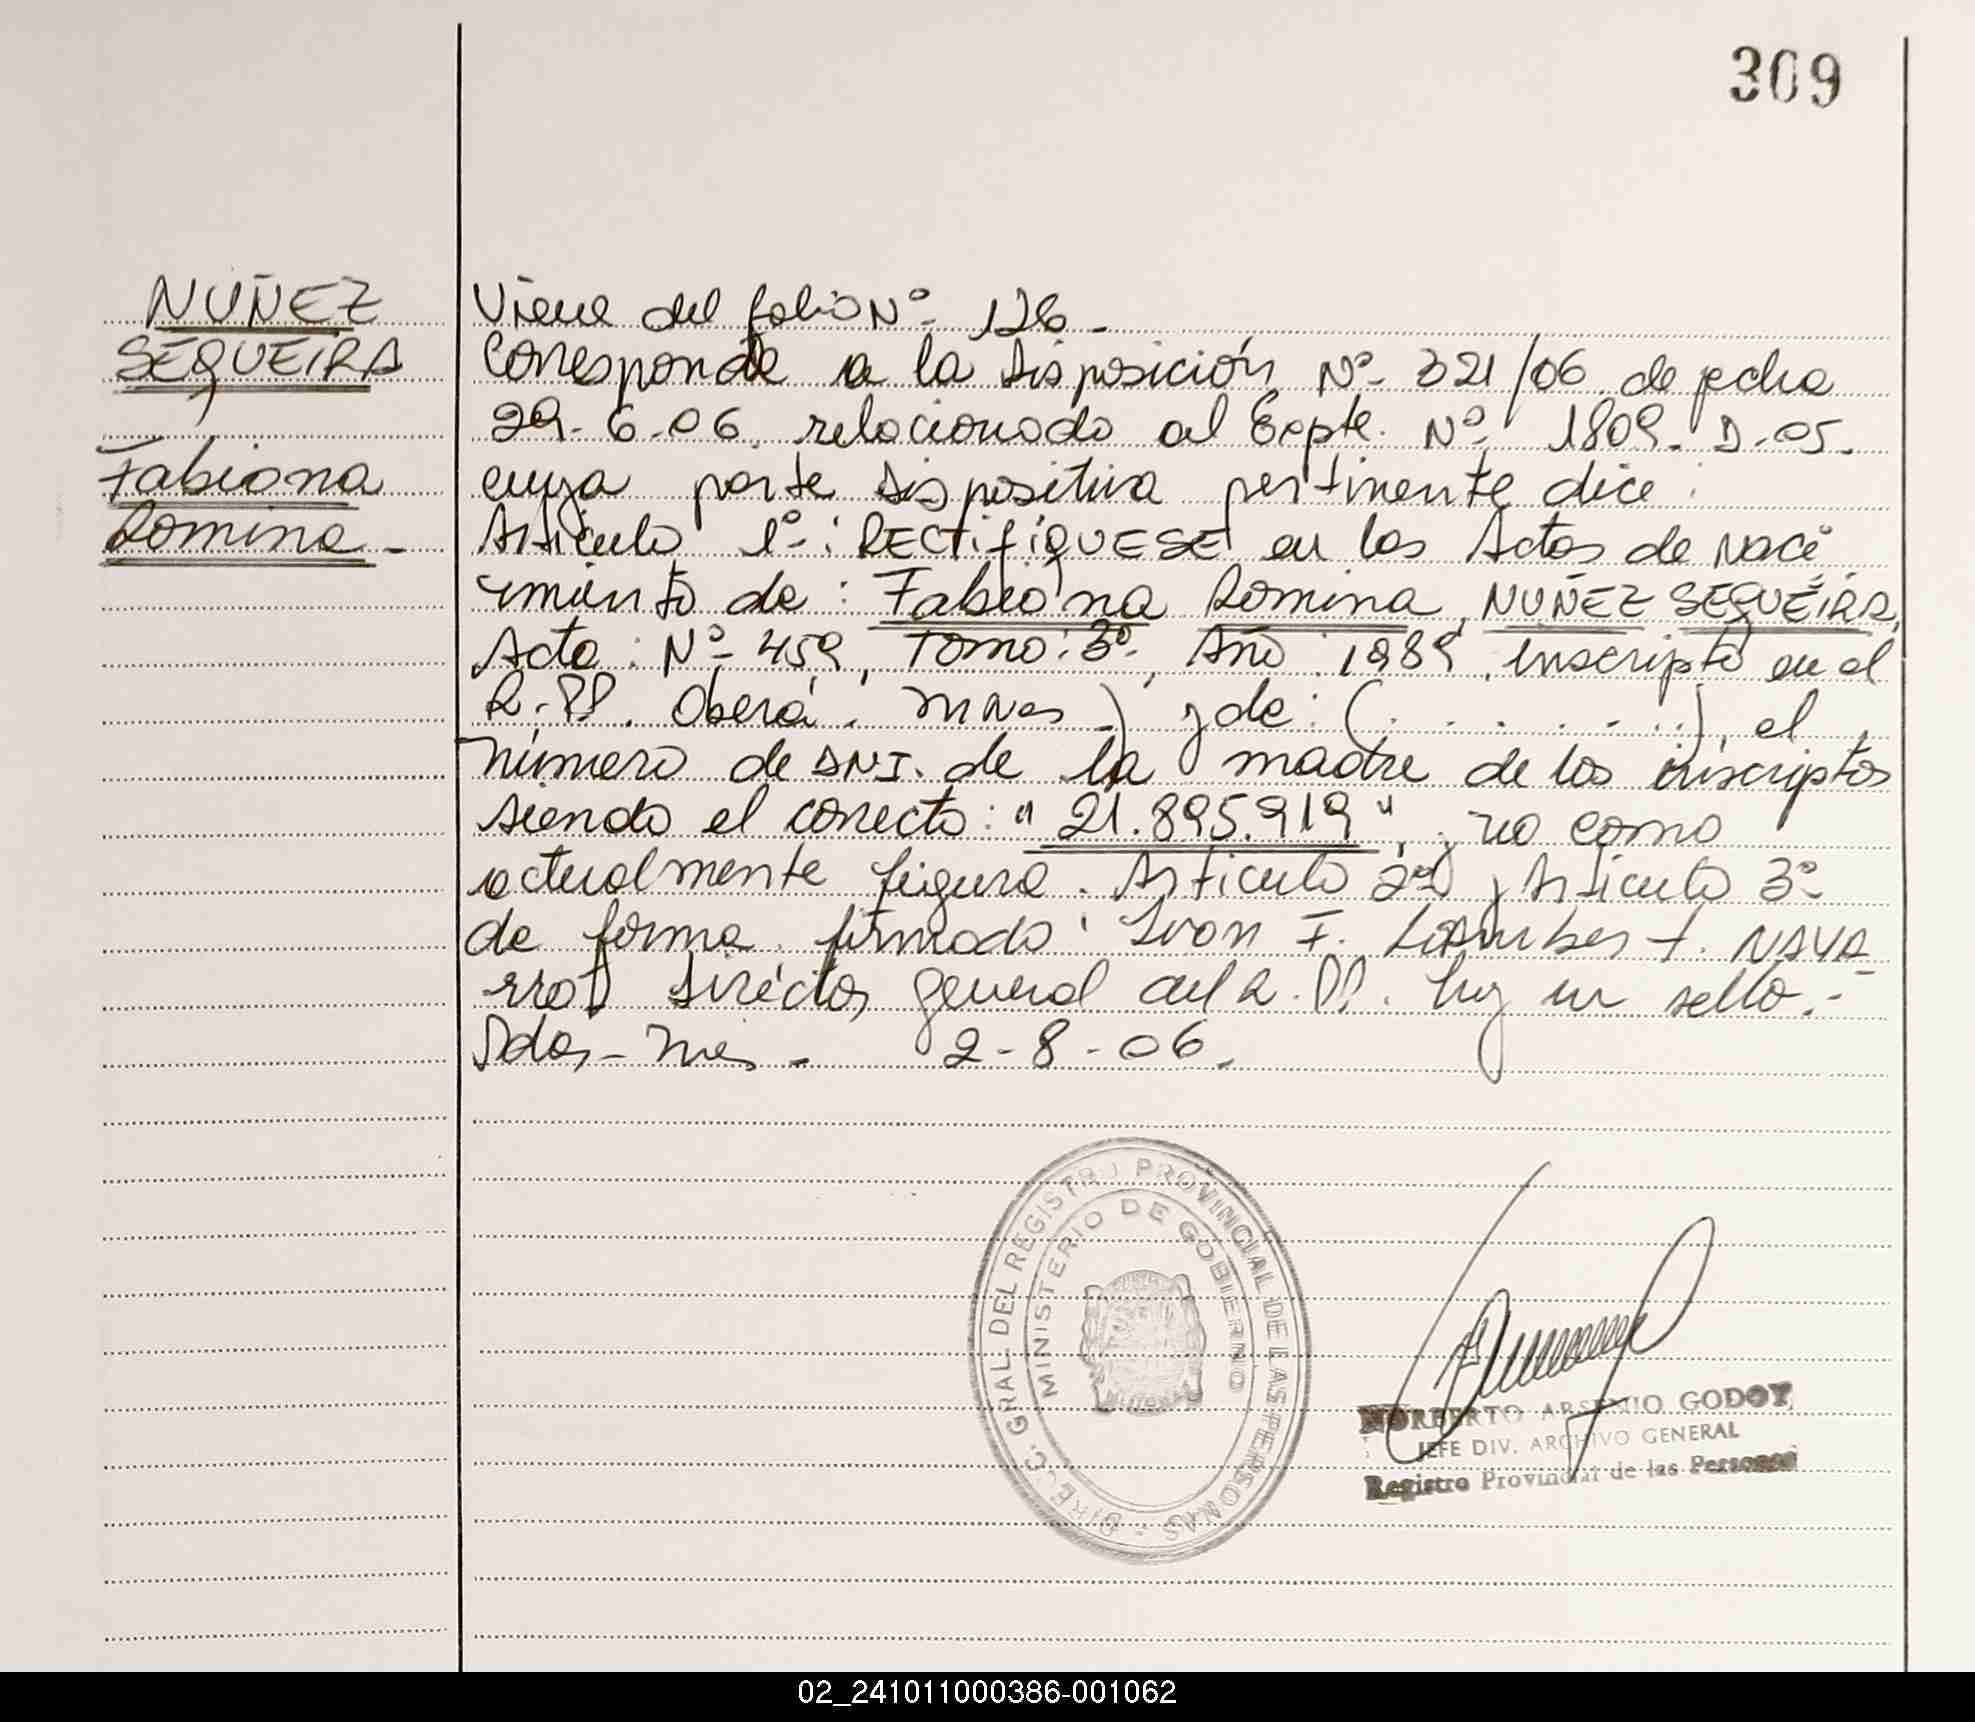 309
NUÑEZ
SEQUEIRA,
Fabiana
Romina -
Viene del folio Nº 126 -
Corresponde a la Disposición Nº 321/06 de fecha
29-6-06, relacionado al Expte. Nº 1809-D-05.
cuya parte dispositiva pertinente dice:
Artículo 1º: RECTIFIQUESE en las Actas de Naci
miento de: Fabiana Romina NUÑEZ SEQUEIRA,
Acta: Nº 459, Tomo: 3º, Año: 1989, inscripta en el
R.PP. Oberá. Mnes) y de: (..........), el
número de DNI. de la madre de los inscriptos
siendo el correcto: "21.895.919", no como
actualmente figura. Artículo 2º y Artículo 3º
de forma. firmado: Ivan F. Lambert. NAVA-
rro Director general del R.PP. hay un sello.-
Pdas-Mnes - 2-8-06.
DIREC. GRAL. DEL REGISTRO PROVINCIAL DE LAS PERSONAS
MINISTERIO DE GOBIERNO
NORBERTO ARSENIO GODOY
JEFE DIV. ARCHIVO GENERAL
Registro Provincial de las Personas
02_241011000386-001062